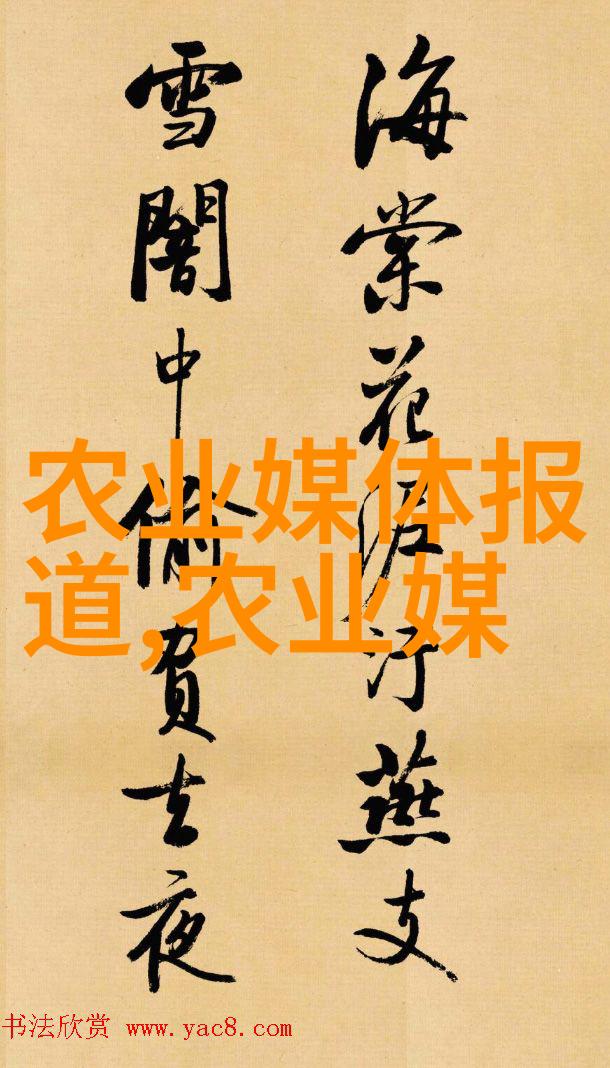 海棠花泥汙燕支
雪闇中偷負去夜
农业媒体报
道,农业媒
书法欣赏 www.yac8.com